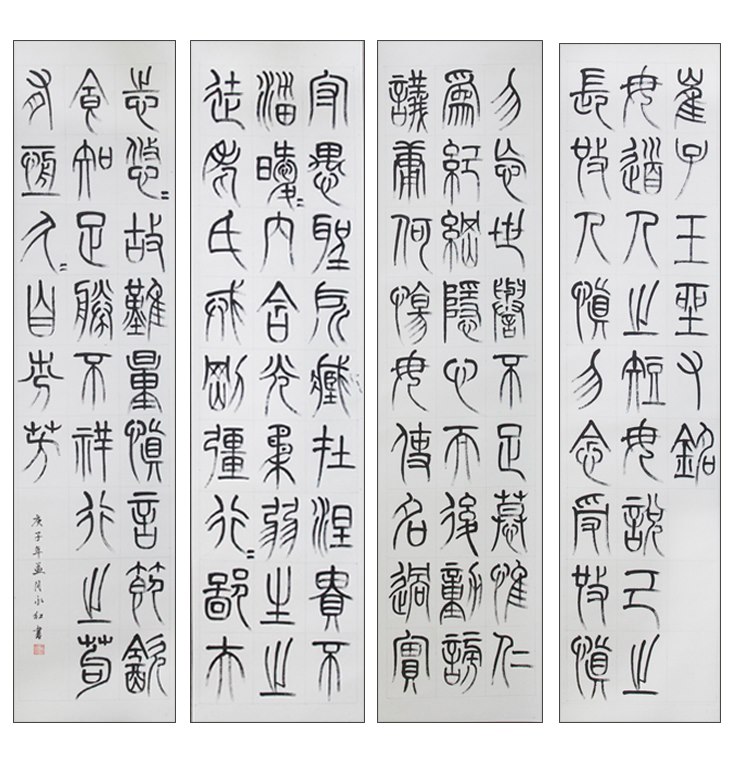 崔子玉坐右銘
毋道人之短毋說己之
長施人慎勿念受施慎
勿忘世譽不足慕惟仁
為紀綱隱心而後動謗
議庸何傷毋使名過實
守愚聖所臧在涅貴不
淄曖〻內含光柔弱生之
徒老氏戒剛彊行〻鄙夫
志悠〻故難量慎言節飲
食知足勝不祥行之苟
有恆久〻自芬芳
庚子年